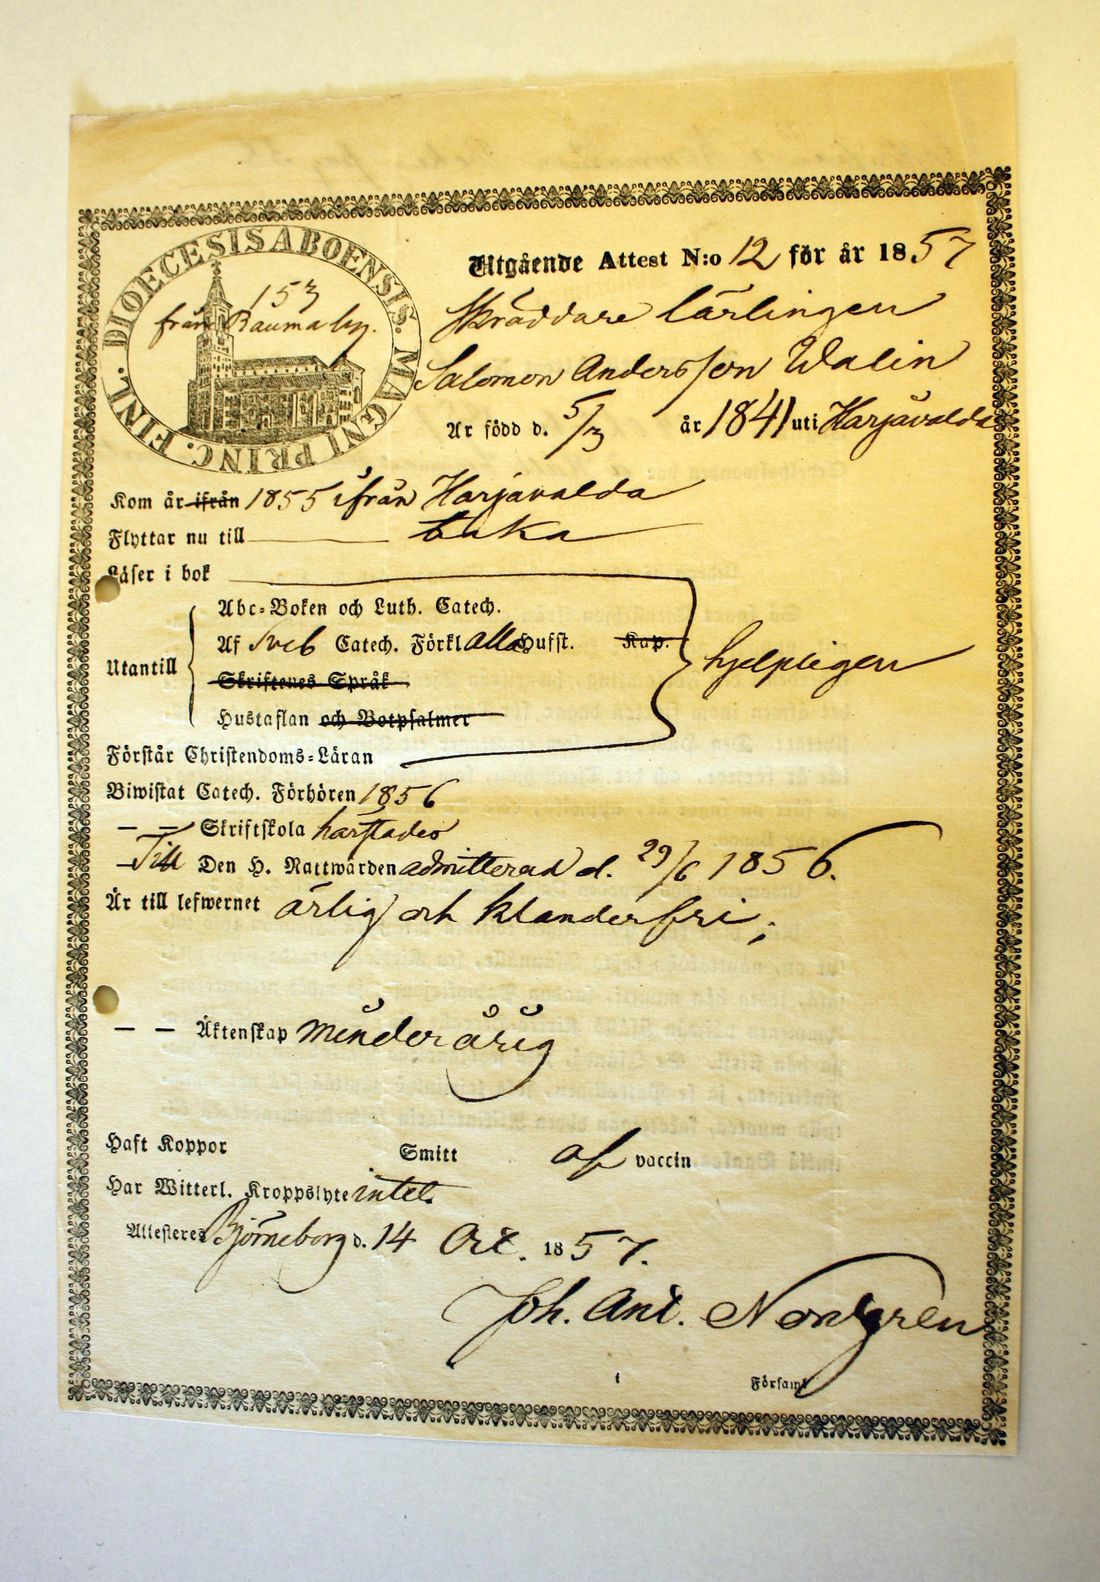 DIOECESIS ABOENSIS. MAGNI PRINC. FINL.
153
från Raumo
Utgående Attest N:o 12 för år 1857
Skräddare lärlingen
Salomon Andersson Walin
Är född d. 5/3 år 1841 uti Harjavalda
Kom år ifrån 1855 ifrån Harjavalda
Flyttar nu till
Läser i bok
Abc-Boken och Luth. Catech.
Utantill
Af Sveb Catech. Förkl alla Hufst. Kap.
hjelpligen
Skriftenes Språk
Hustaflan och Botpsalmer
Förstår Christendoms-Läran
Biwistat Catech. Förhören 1856
— — Skriftskola härstädes
Till Den H. Nattwarden admitterad d. 29/6 1856.
Är till lefwernet ärlig och klanderfri;
— — Äktenskap minderårig
Haft Koppor Smitt af vaccin
Har Witterl. Kroppslyte intet.
Attesteres Björneborg d. 14 Oct. 1857.
Joh. Ant. Nordgren
i Församl